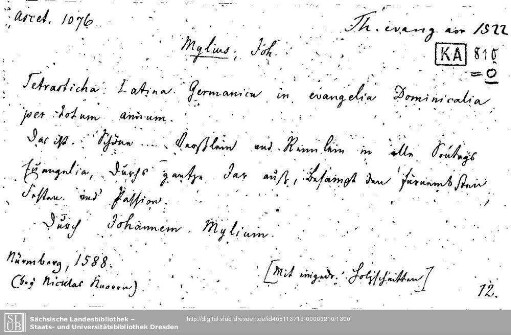 Ascet. 1076
Th. evang. asc 1522
Mylius, Joh
KA 810
= 0
Tetrasticha Latina Germanica in evangelia Dominicalia
per totum annum.
Das ist: Schöne ... und Reimlein in alle Sontags
Evangelia, durchs gantze Jar auß, besampt den fürnembsten
Festen und Passion.
Durch Johannem Mylium.
Nürmberg, 1588.
(bey Nicklas Knorrn)
[Mit eingedr. Holzschnitten]
12.
SLUB
Sächsische Landesbibliothek –
Staats- und Universitätsbibliothek Dresden